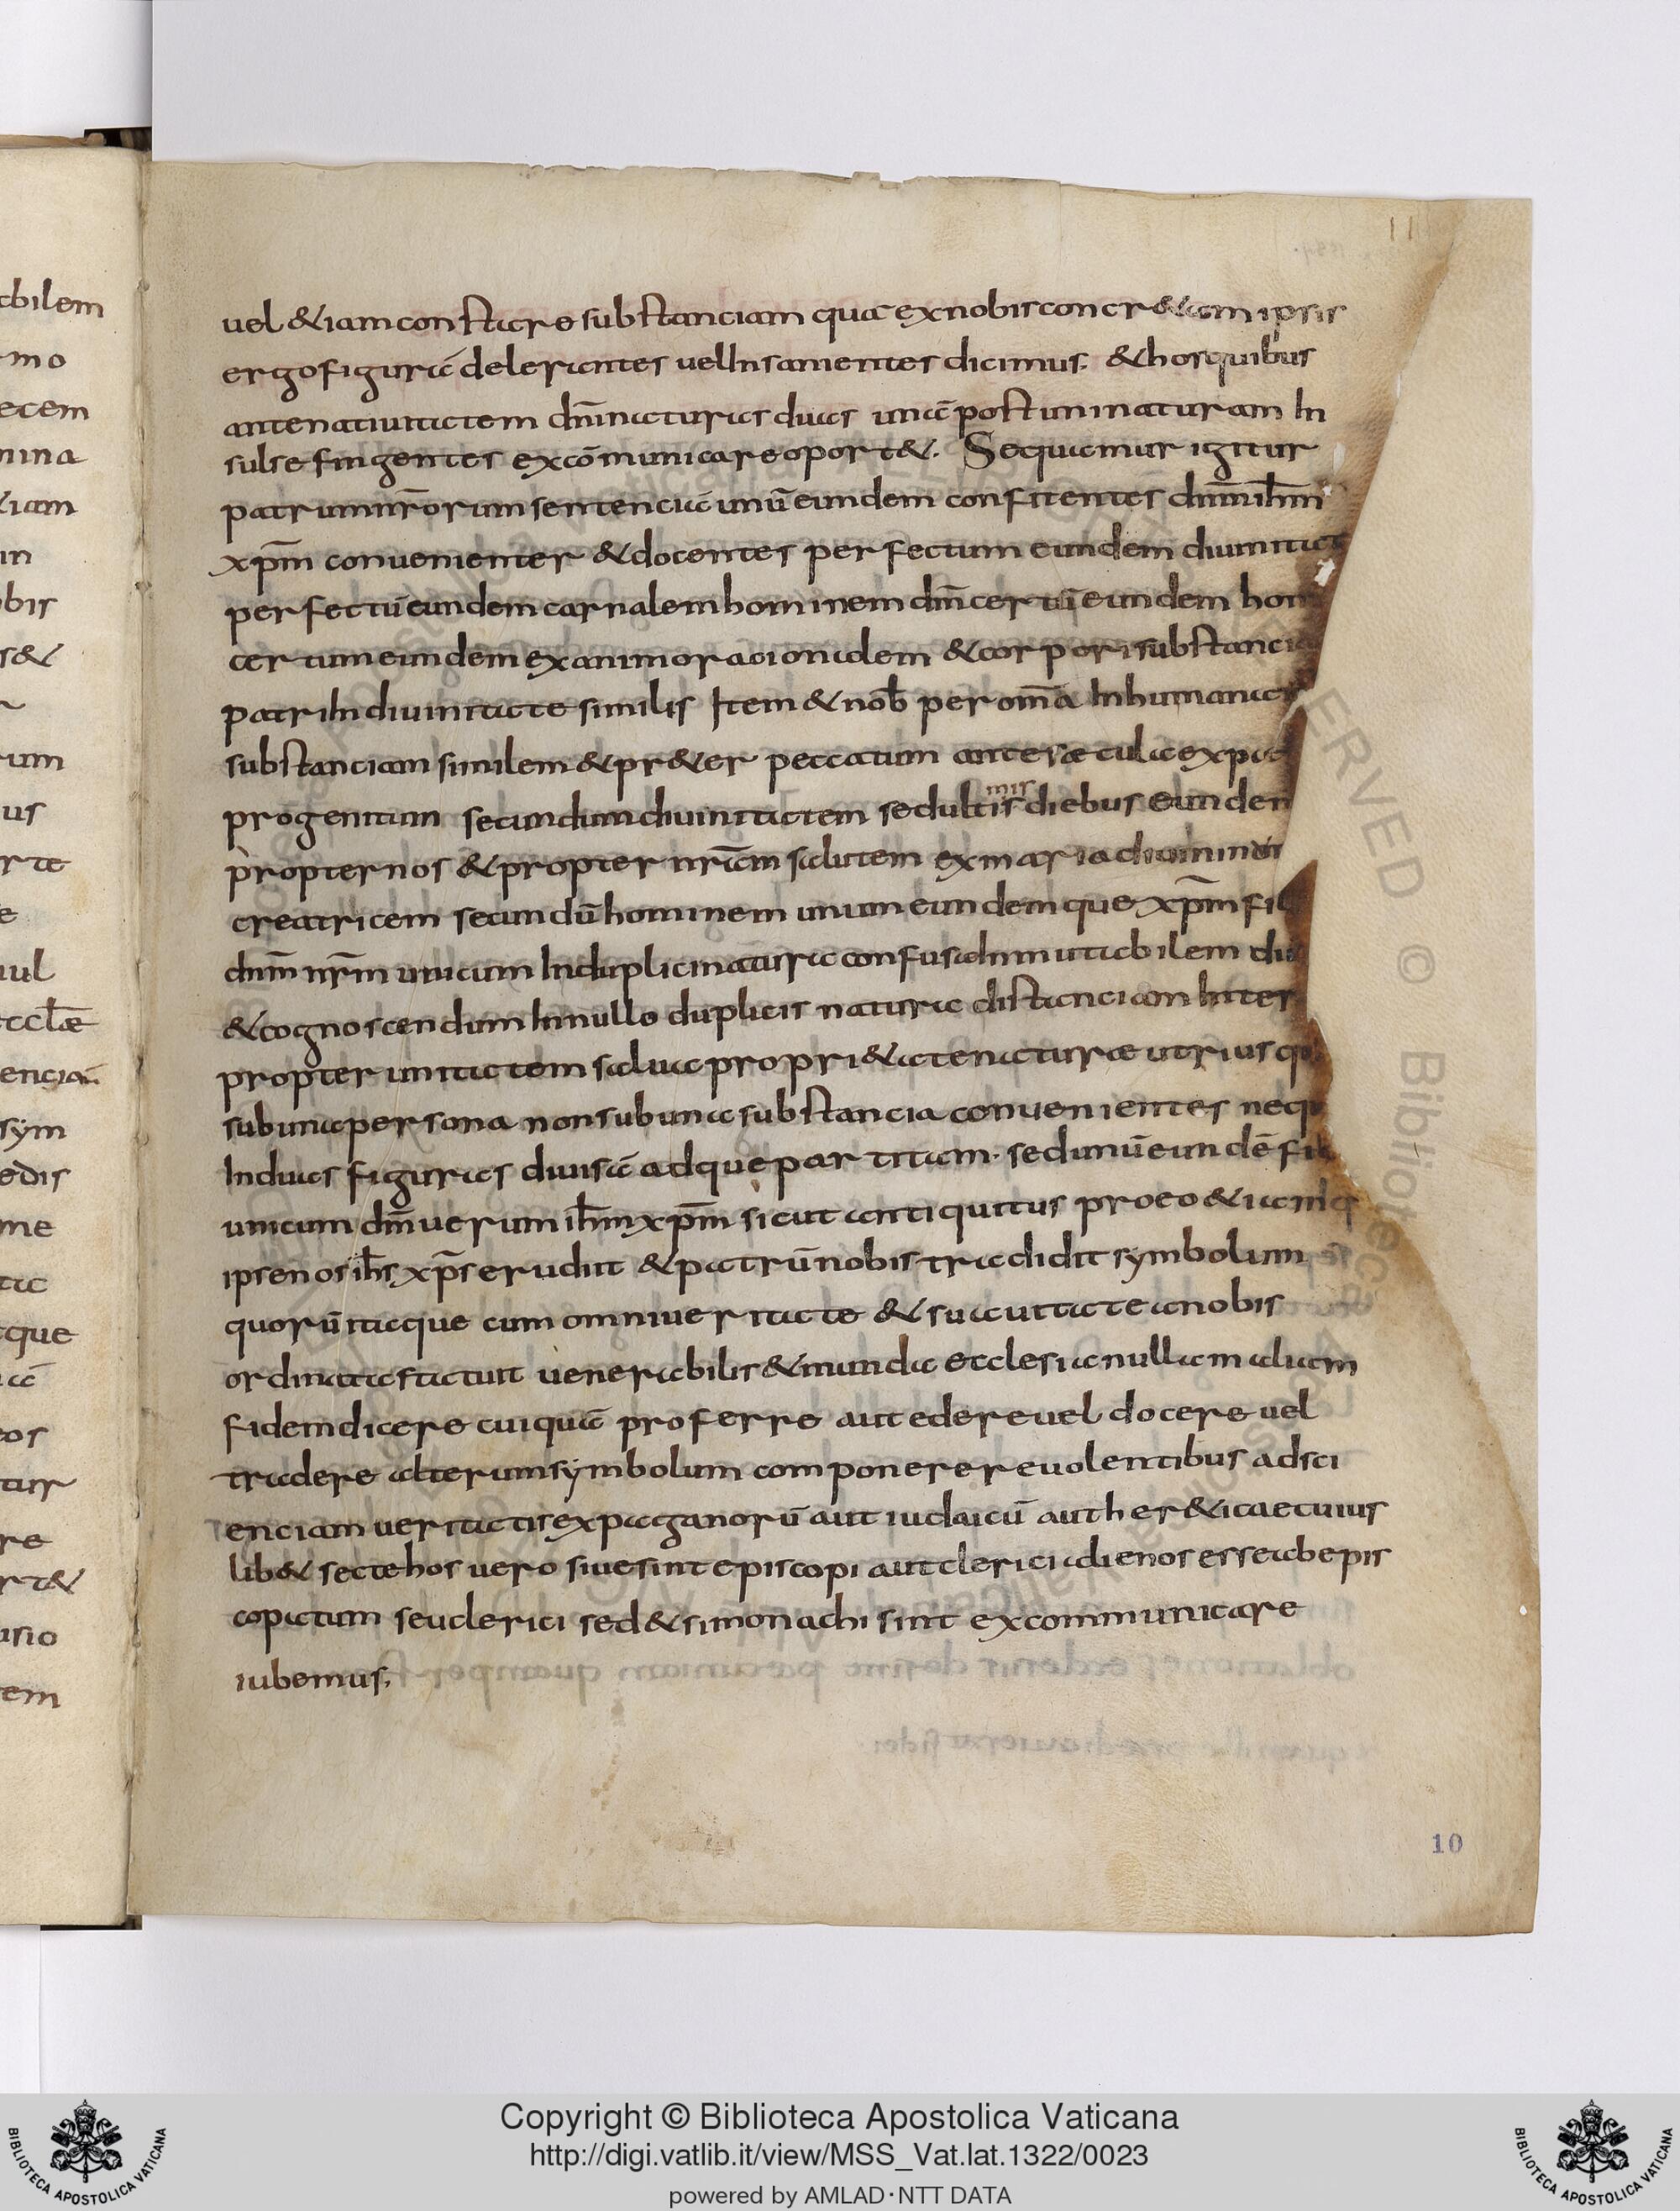 uel &iam constare substanciam qua ex nobis concr&iam ipsis
ergo figurā delerantes uel Insanientes dicimus. & hos quibus
ante natiuitatem dn̄i naturas duas unā post un inaturam In
sulse fingentes excōmunicare oport&. Sequamur igitur
patrum nr̄orum sentenciā unū eundem confitentes dnm̄ ih̄m
xp̄m conuenienter & docentes perfectum eundem diuinitat
perfectū eundem carnalem hominem dm̄ certū eundem hom
certum eundem ex animo racionidem & corpori substancia
patri In diuinitate similis Item & nob̄ per om̄a In humanita
substanciam similem & pr&er peccatum ante sæcula ex pat
progenitum secundum diuinitatem sed ultimis diebus eundem
propter nos & propter nr̄am salutem ex maria
creatricem secundū hominem unum eundemque xp̄m fil
dnm̄ nr̄m unicum In duplici natura confusa Inmutabilem
& cognoscendum In nullo duplicis natura distanciam Inter
propter unitatem salua propri&ate naturæ utriusq
sub una persona non sub una substancia conuenientes neq
In duas figuras diuisā adque partitam. sed unū eundē fil
unicum dm̄ uerum ih̄m xp̄m sicut antiquitus pro eo & iam
ipse nos ih̄s xp̄s erudiit & patrū nobis tradidit symbolum
quorū itaque cum omni ueritate & suauitate a nobis
ordinata statuit uenerabilis & munda ecclesia nullam aliam
fidem dicere cuiquā proferre aut edere uel docere uel
tradere alterum symbolum componere reuolentibus ad sci
enciam ueritatis ex paganorū aut iudaicū aut her&ica e cuius
lib& secte hos uero siue sint episcopi aut clerici alienos esse ab epis
copatum seu clerici sed & si monachi sint excommunicare
iubemus.
11
10
Copyright © Biblioteca Apostolica Vaticana
http://digi.vatlib.it/view/MSS_Vat.lat.1322/0023
powered by AMLAD·NTT DATA
BIBLIOTECA APOSTOLICA VATICANA
BIBLIOTECA APOSTOLICA VATICANA